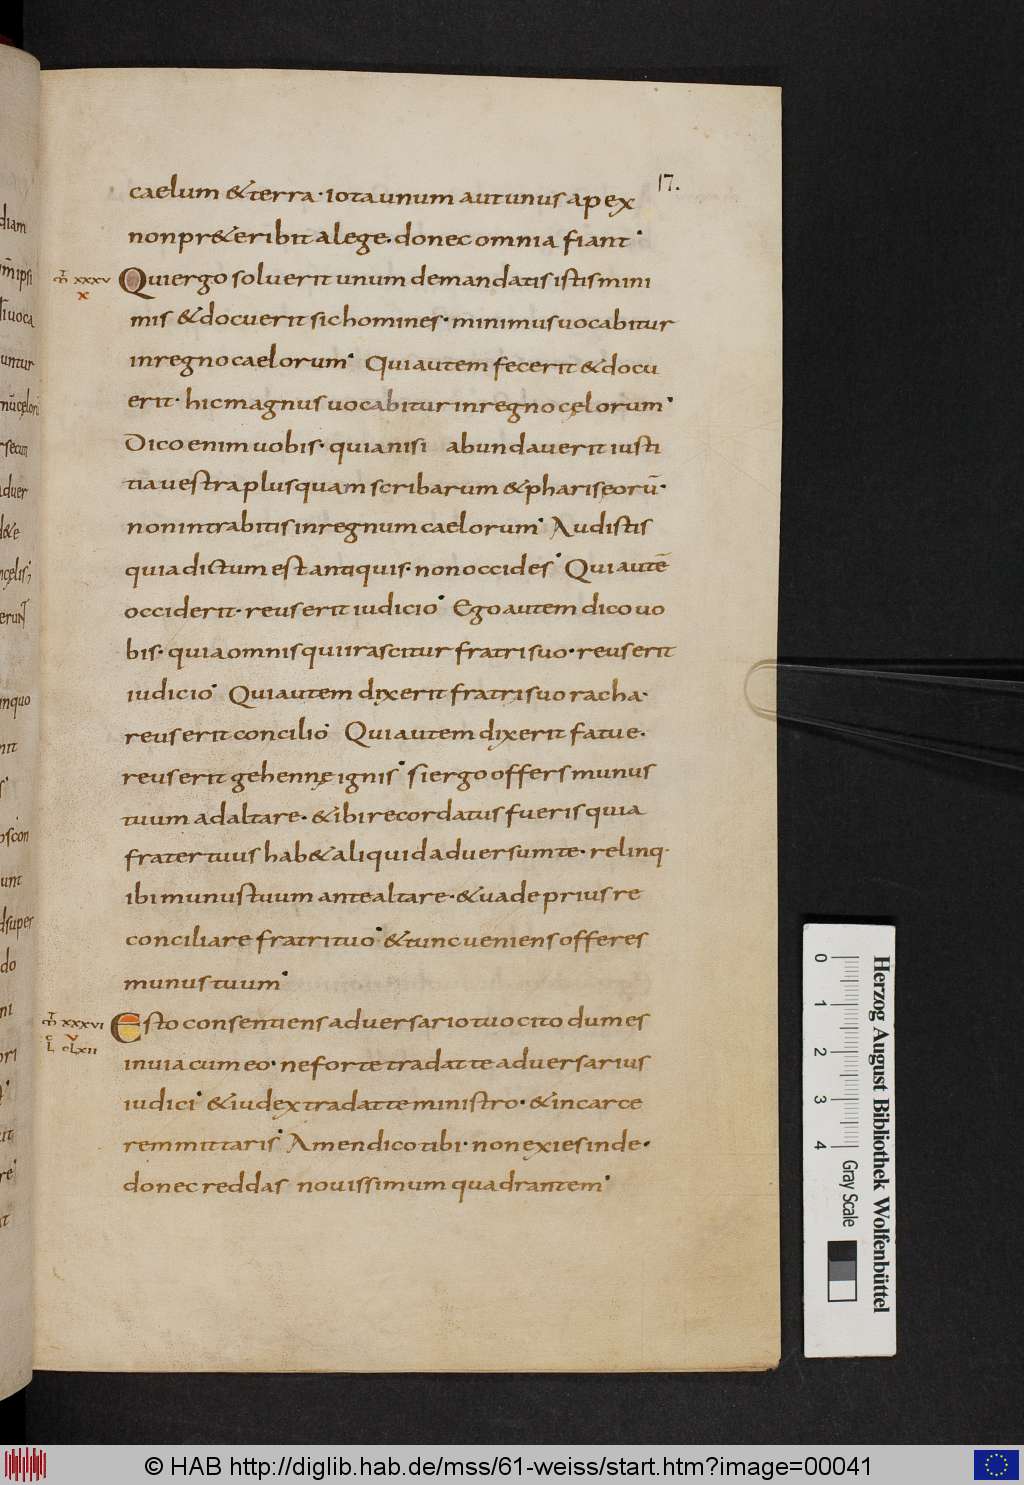 17.
caelum & terra · iota unum aut unus apex
non pr&eribit a lege · donec omnia fiant ·
m̄ xxxv
x
Qui ergo soluerit unum de mandatis istis mini
mis & docuerit sic homines · minimus uocabitur
in regno caelorum · Qui autem fecerit & docu
erit · hic magnus uocabitur in regno cęlorum ·
Dico enim uobis · quia nisi abundauerit iusti
tia uestra plus quam scribarum & phariseorū ·
non intrabitis in regnum caelorum · Audistis
quia dictum est antiquis · non occides · Qui autē
occiderit · reus erit iudicio · Ego autem dico uo
bis · quia omnis qui irascitur fratri suo · reus erit
iudicio · Qui autem dixerit fratri suo racha ·
reus erit concilio · Qui autem dixerit fatue ·
reus erit gehennę ignis · si ergo offers munus
tuum ad altare · & ibi recordatus fueris quia
frater tuus hab& aliquid aduersum te · relinq·
ibi munus tuum ante altare · & uade prius re
conciliare fratri tuo · & tunc ueniens offeres
munus tuum ·
m̄ xxxvi
v
L cLxii
Esto consentiens aduersario tuo cito dum es
in uia cum eo · ne forte tradat te aduersarius
iudici · & iudex tradat te ministro · & in carce
rem mittaris · Amen dico tibi · non exies inde ·
donec reddas nouissimum quadrantem ·
diam
m̄ ipsi
uoca
untur
secun
aduer
d&e
ncęlis
erunt
inquo
nit
scon
unt
dsuper
do
ni
ori
it
re
Herzog August Bibliothek Wolfenbüttel
0 1 2 3 4 Gray Scale
© HAB http://diglib.hab.de/mss/61-weiss/start.htm?image=00041